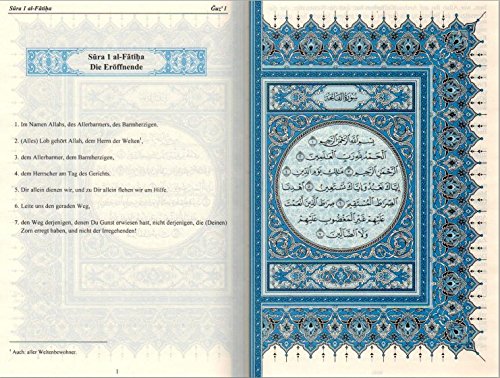 Sūra 1 al-Fātiḥa
Ǧuzʾ 1
Sūra 1 al-Fātiḥa
Die Eröffnende
1. Im Namen Allahs, des Allerbarmers, des Barmherzigen.
2. (Alles) Lob gehört Allah, dem Herrn der Welten¹,
3. dem Allerbarmer, dem Barmherzigen,
4. dem Herrscher am Tag des Gerichts.
5. Dir allein dienen wir, und zu Dir allein flehen wir um Hilfe.
6. Leite uns den geraden Weg,
7. den Weg derjenigen, denen Du Gunst erwiesen hast, nicht derjenigen, die (Deinen)
Zorn erregt haben, und nicht der Irregehenden!
¹ Auch: aller Weltenbewohner.
1
سورة الفاتحة
بسم الله الرحمن الرحيم ١
الحمد لله رب العالمين ٢
الرحمن الرحيم ٣ ملك يوم الدين ٤
إياك نعبد وإياك نستعين ٥ اهدنا
الصراط المستقيم ٦ صراط الذين أنعمت
عليهم غير المغضوب عليهم
ولا الضالين ٧